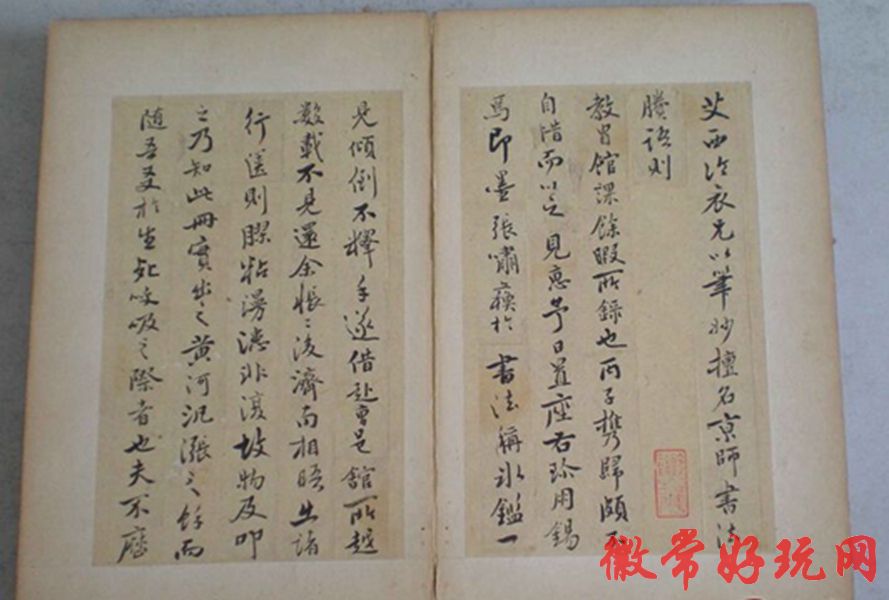 艾西泠衣兄以筆妙擅名京師書法
賸語則
教習館課餘暇所錄也丙子携歸頗
自惜而以之見惠予日置座右珍用錫
馬即墨張嘯蘋於書法稱冰鑑一
見傾倒不釋手遂借赴曹邑館所越
數載不見還余悵悵後濟南相晤出諸
行篋則膠粘漫漶非復故物及叩
之乃知此冊實出之黄河汎漲之餘而
隨吾友於生死呼吸之際者也夫不歷
徽常好玩网